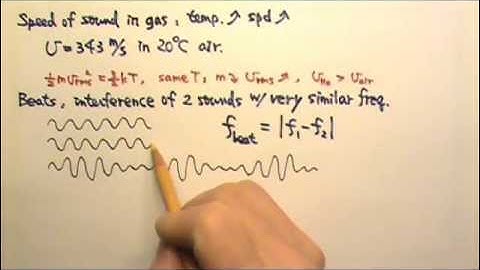 Speed of sound in gas, temp. ↗ spd ↗
v = 343 m/s in 20°C air.
½ m v_rms² = ½ kT, same T, m ↘ v_rms ↗, v_He > v_air
Beats, interference of 2 sounds w/ very similar freq.
f_beat = |f₁-f₂|